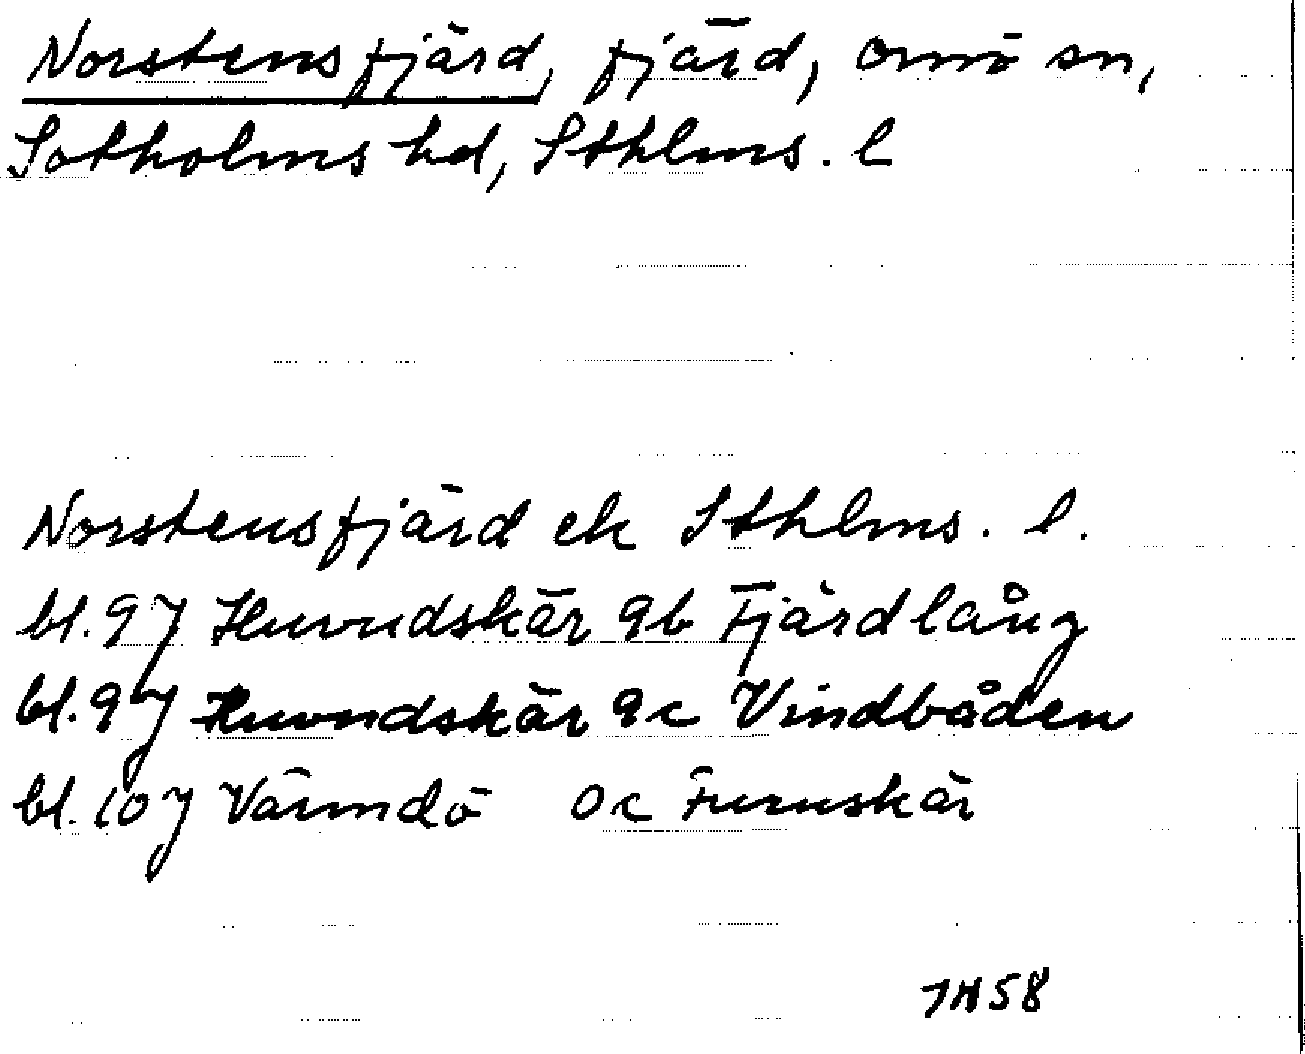 Norstensfjärd, fjärd, Ornö sn,
Sotholms hd, Sthlms. l
Norstensfjärd ek Sthlms. l.
bl. 9J Huvudskär 9b Fjärdlång
bl. 9J Huvudskär 9c Vindbåden
bl. 10J Värmdö 0c Furuskär